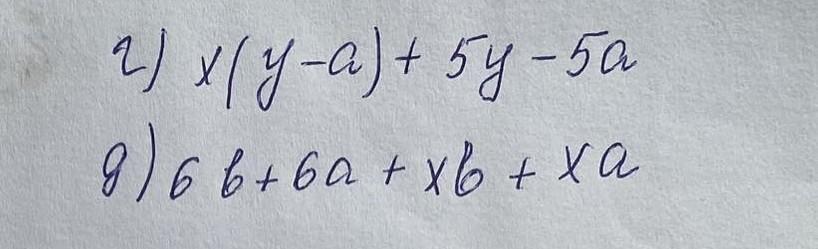 г) x(y-a)+5y-5a
д) 6b+6a+xb+xa